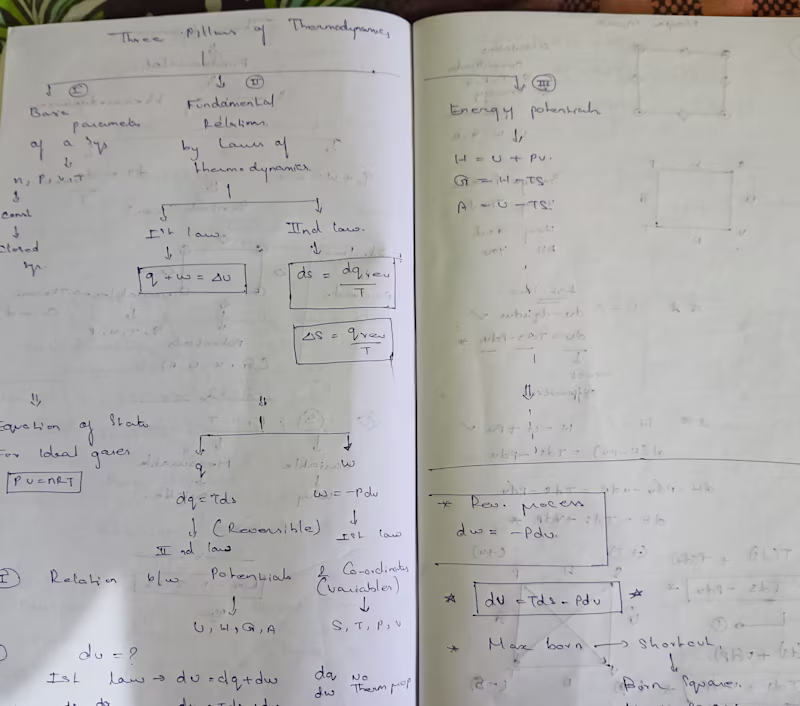 Three Pillars of Thermodynamics
I
Basic
parameters
of a sys
n, P, V, T
const
closed
sys.
II
Fundamental
Relations
by Laws of
thermodynamics.
Ist law.
q + w = ΔU
IInd law.
ds = dqrev/T
ΔS = qrev/T
Equation of State
For Ideal gases
PV = nRT
q
dq = Tds
(Reversible)
IInd law
w
w = -Pdv
Ist law
I Relation b/w Potentials & Co-ordinates
(variables)
U, H, G, A
S, T, P, V
du = ?
Ist law → du = dq + dw
dq No
dw Therm prop
III
Energy potentials
H = U + PV.
G = H - TS.
A = U - TS.
* Rev. process
dw = -Pdv.
* dU = Tds - Pdv *
* Max born → Shortcut.
Born Square.